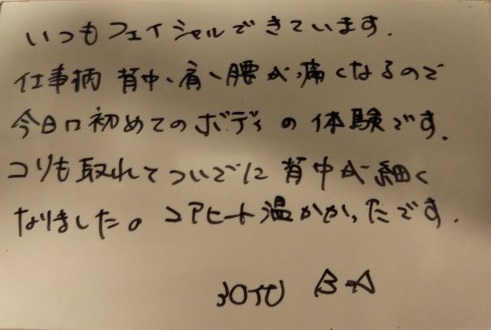 いつもフェイシャルできています.
仕事柄 背中、肩、腰が痛くなるので
今日は初めてのボディの体験です.
コリも取れてついでに背中が細く
なりました。コアヒート温かかったです.
30代 B-A